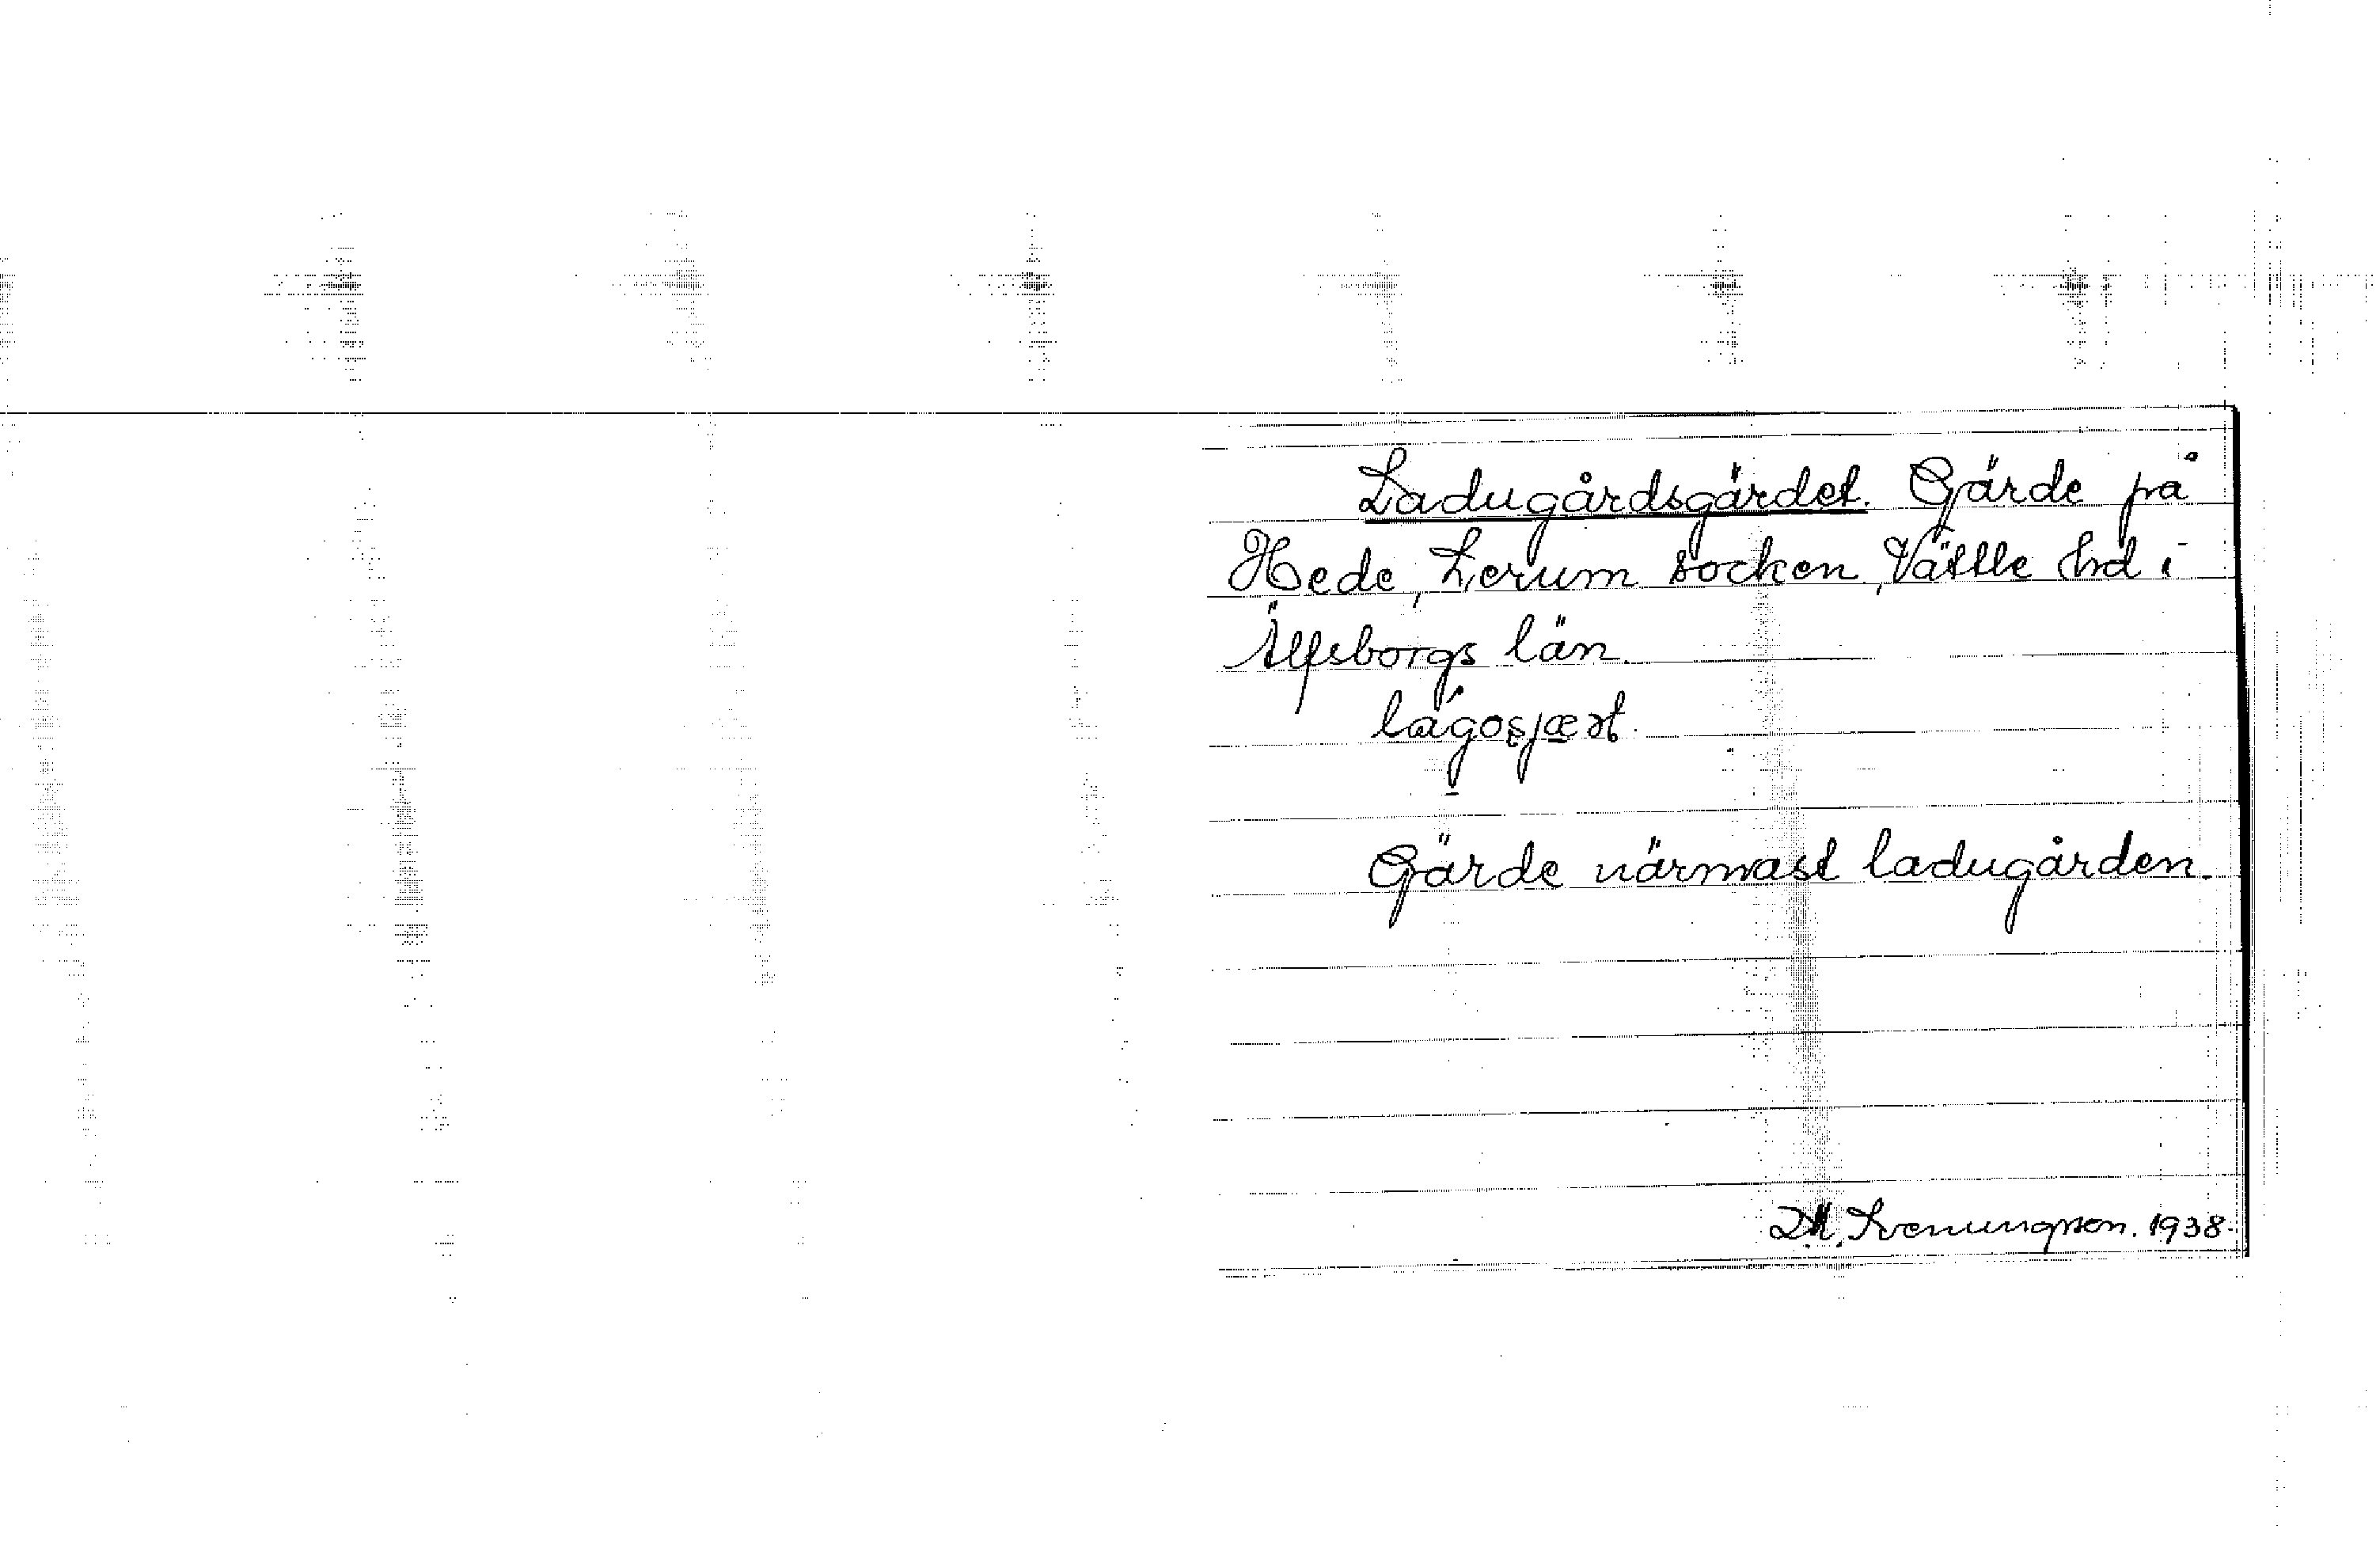 Ladugårdsgärdet. Gärde på
Hede, Lerum socken, Vättle hd i
Älfsborgs län.
lágosjæṛt.
Gärde närmast ladugården.
D.M. Svenungsson. 1938.